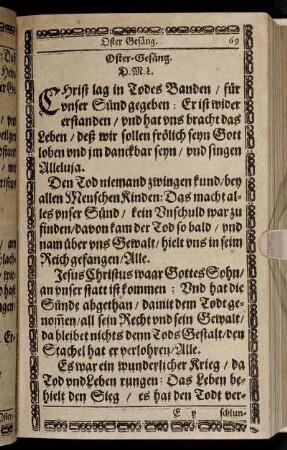 Oster Gesäng. 69
Oster-Gesäng.
D. M. L.
CHrist lag in Todes Banden / für
vnser Sünd gegeben: Er ist wider
erstanden / vnd hat vns bracht das
Leben / deß wir sollen frölich seyn Gott
loben vnd jm danckbar seyn / vnd singen
Alleluja.
Den Tod niemand zwingen kund / bey
allen Menschen Kinden: Das macht al-
les vnser Sünd / kein Vnschuld war zu
finden / davon kam der Tod so bald / vnd
nam über vns Gewalt / hielt vns in seim
Reich gefangen / Alle.
Jesus Christus waar Gottes Sohn /
an vnser statt ist kommen: Vnd hat die
Sünde abgethan / damit dem Todt ge-
nom̃en / all sein Recht vnd sein Gewalt /
da bleibet nichts denn Tods Gestalt / den
Stachel hat er verlohren / Alle.
Es war ein wunderlicher Krieg / da
Tod vnd Leben rungen: Das Leben be-
hielt den Sieg / es hat den Todt ver-
E v schlun-